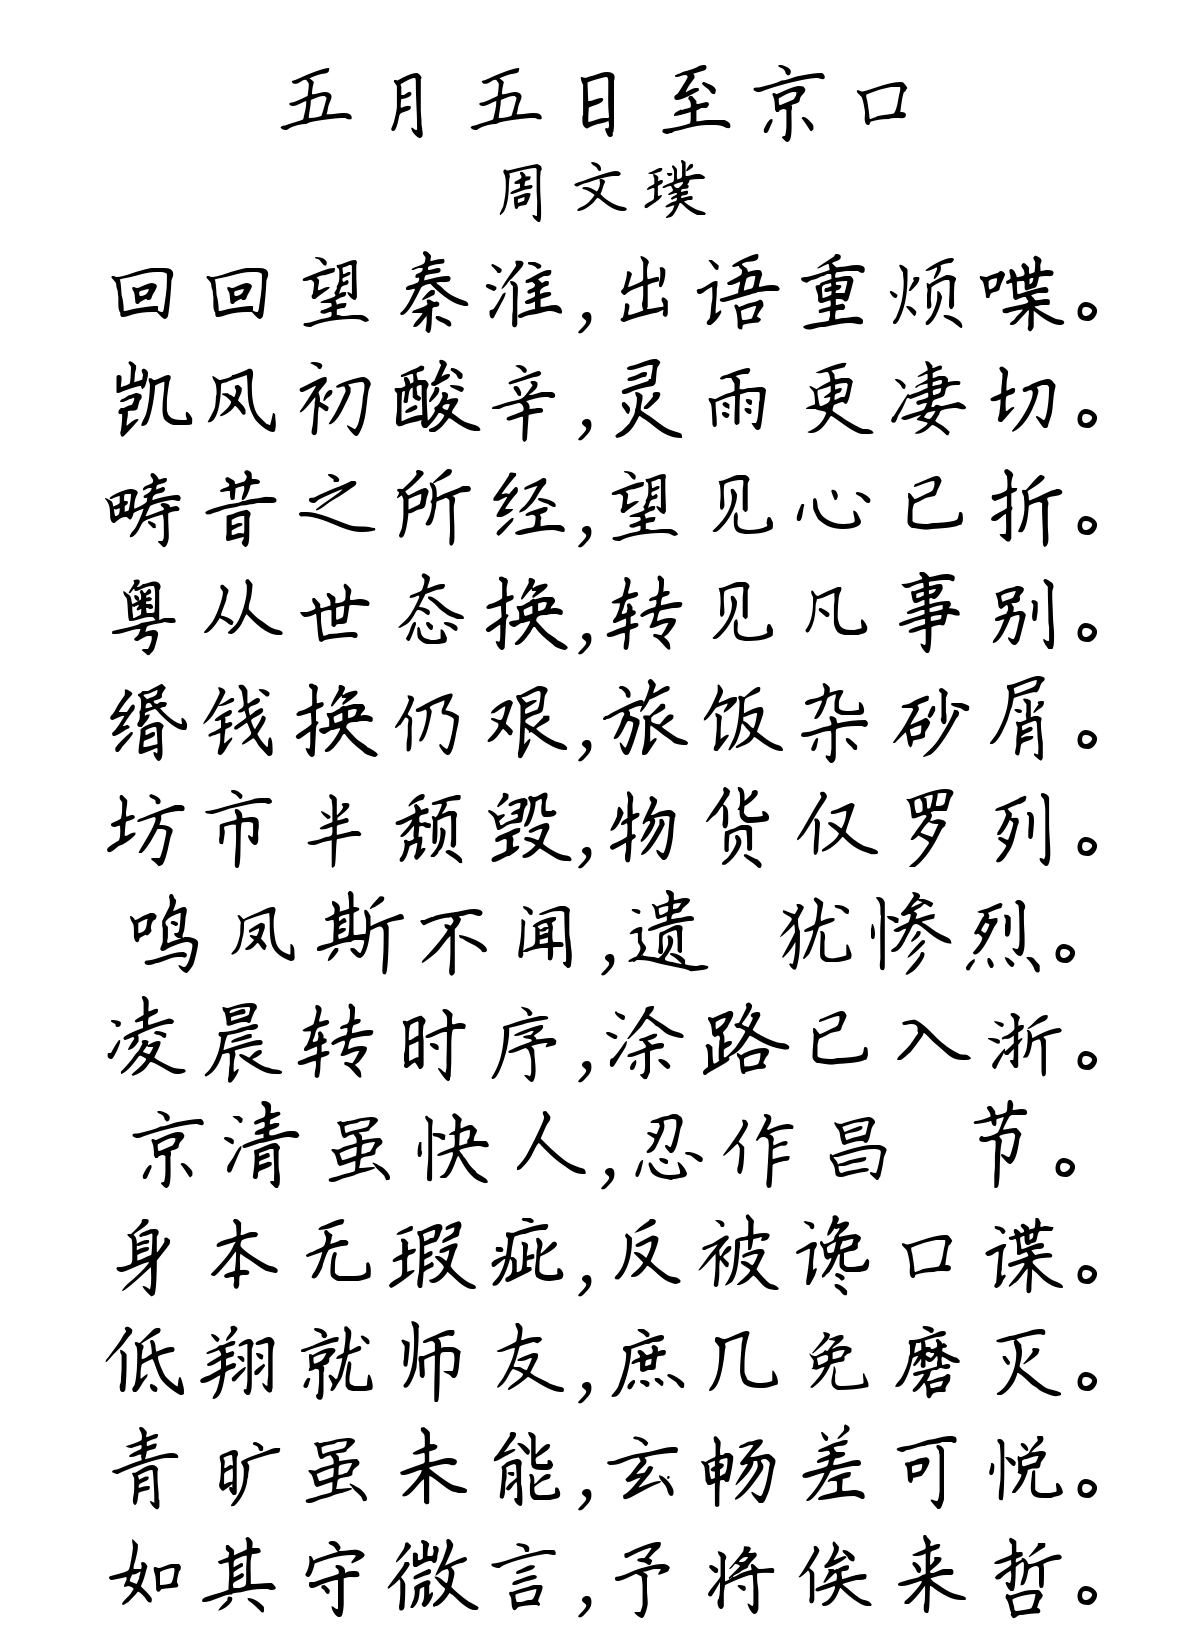 五月五日至京口
周文璞
回回望秦淮,出语重烦喋。
凯风初酸辛,灵雨更凄切。
畴昔之所经,望见心已折。
粤从世态换,转见凡事别。
缗钱换仍艰,旅饭杂砂屑。
坊市半颓毁,物货仅罗列。
鸣凤斯不闻,遗 犹惨烈。
凌晨转时序,涂路已入浙。
京清虽快人,忍作昌 节。
身本无瑕疵,反被谗口谍。
低翔就师友,庶几免磨灭。
青旷虽未能,玄畅差可悦。
如其守微言,予将俟来哲。